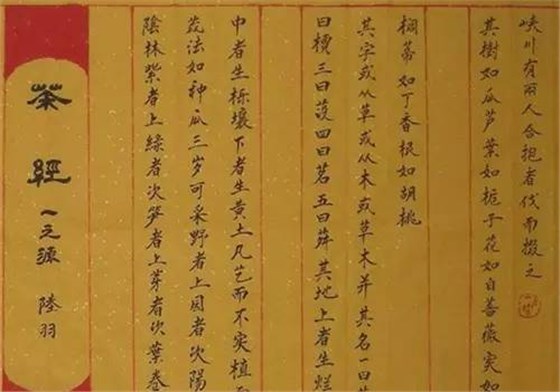 峡川有两人合抱者伐而掇之
其樹如瓜芦葉如栀子花如白薔薇实如
榈蒂如丁香根如胡桃
其字或从草或从木或草木并其名一曰
曰檟三曰蔎四曰茗五曰荈其地上者生爛
中者生栎壤下者生黄土凡艺而不实植
茂法如种瓜三岁可采野者上园者次陽
陰林紫者上緑者次笋者上芽者次葉卷
茶經
一之源
陸羽